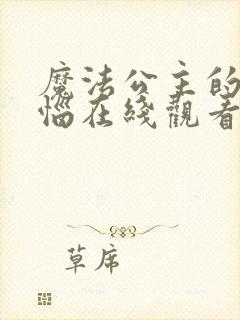 魔法公主的
惱在綫觀看
草席